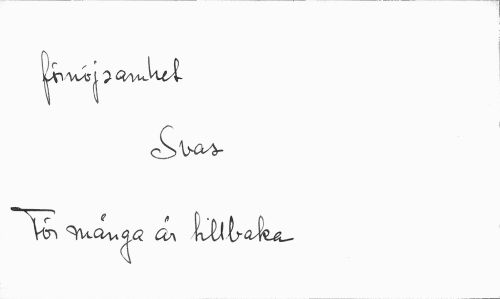 förnöjsamhet
Svas
För många år tillbaka